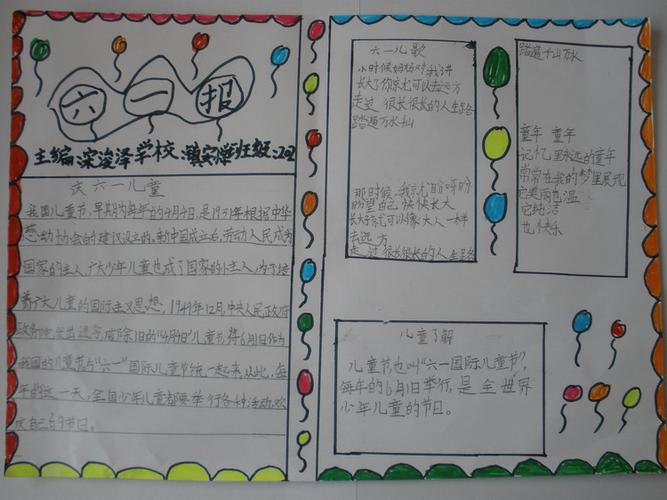 六一报
主编 梁浚泽 学校 班级
庆六一儿童
我国儿童节,早期为每年的4月4日,是1931年根据中华
慈幼协会的建议设立的。新中国成立后,劳动人民成为
国家的主人,广大少年儿童也成了国家的小主人,为了培
养广大儿童的国际主义思想,1949年12月,中央人民政府
政务院发出通令,废除旧的“4月4日”儿童节,将6月1日作为
我国的儿童节与“六一”国际儿童节统一起来。从此,每
年的这一天,全国少年儿童都要举行各种活动,欢
庆自己的节日。
六一儿歌
小时候妈妈对我讲
长大了你就可以去远方
走过 很长很长的人生路
踏遍万水千山
那时候,我就盼呀盼
盼望自己 快快长大
长大了就可以像大人一样
去远方
走过很长很长的人生路
踏遍千山万水
童年 童年
记忆里永远的童年
常常在我的梦里展现
它纯洁
也快乐
儿童了解
儿童节也叫“六一国际儿童节”,
每年的6月1日举行,是全世界
少年儿童的节日。